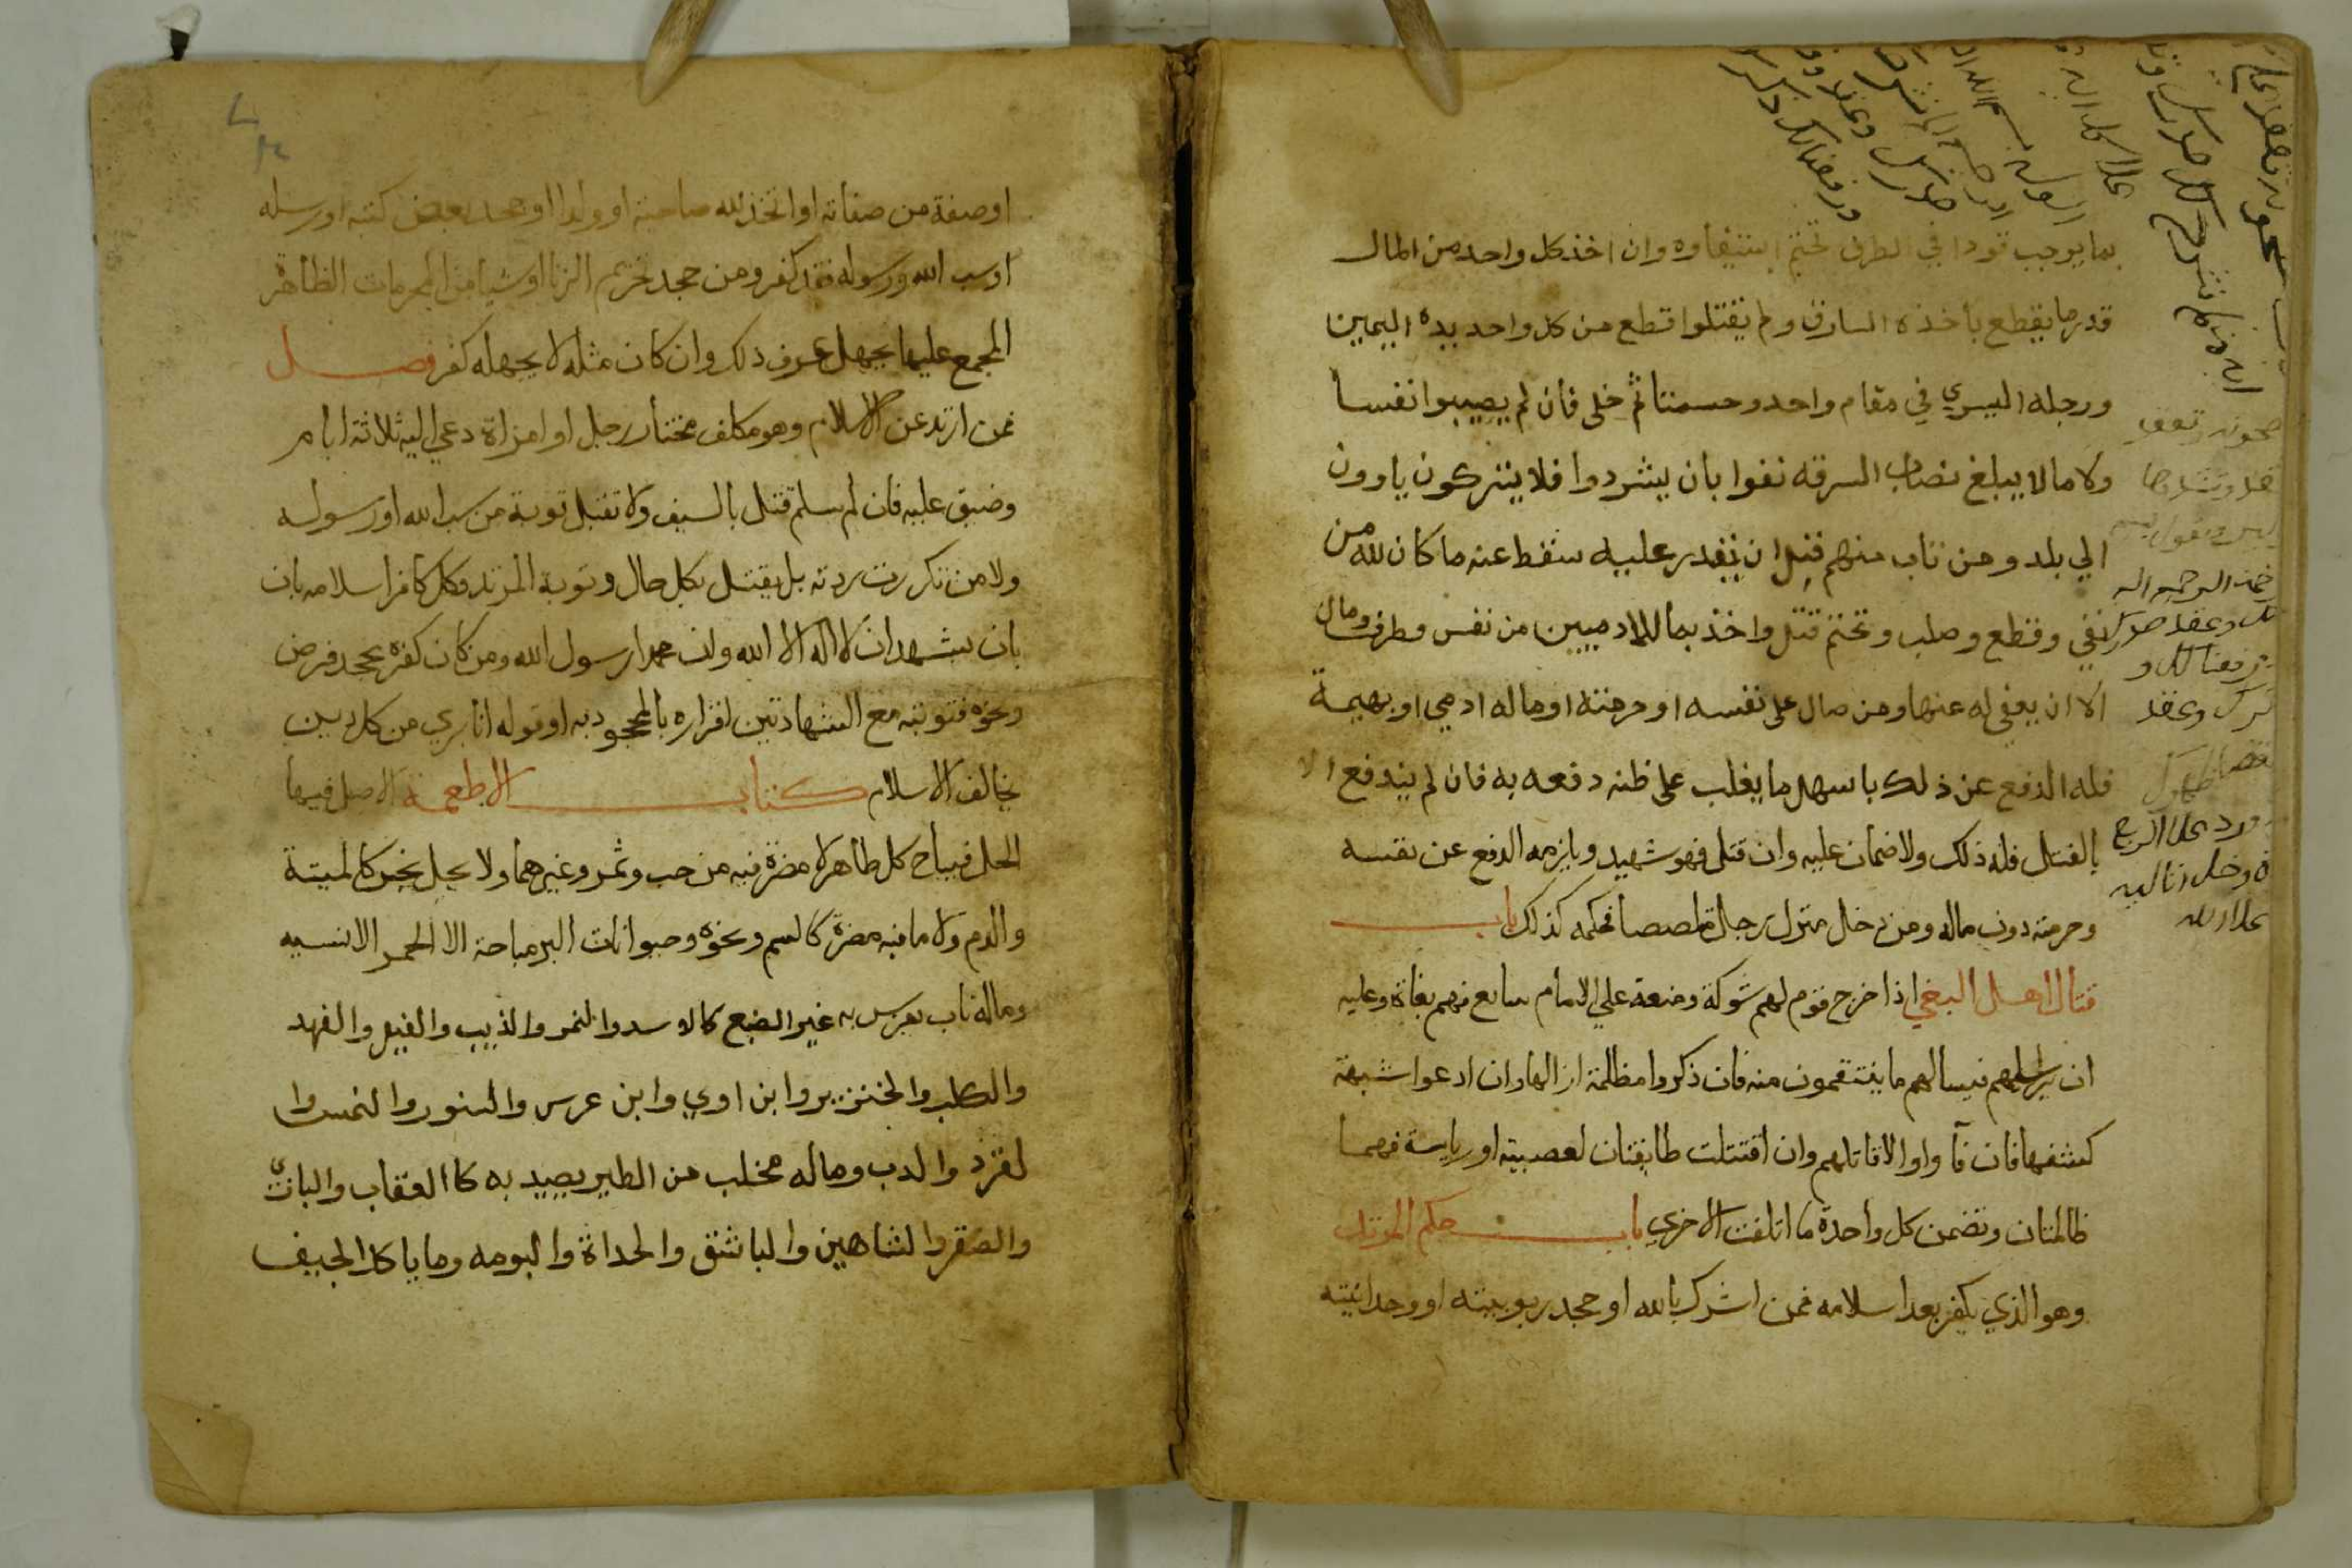 بما يوجب قودا في الطرف تحتم استيفاوه وان اخذ كل واحد من المال
قدر ما يقطع باخذه السارق ولم يقتلوا قطع من كل واحد يده اليمين
ورجله اليسري في مقام واحد وحسمتا ثم خلى فان لم يصيبوا نفسا
ولا مالا يبلغ نصاب السرقه نفوا بان يشردوا فلا يتركون ياوون
الي بلد ومن تاب منهم قبل ان يقدر عليه سقط عنه ما كان لله من
نفي وقطع وصلب وتحتم قتل واخذ بما للادميين من نفس وطرف ومال
الا ان يعفي له عنها ومن صال على نفسه او حرمته او ماله ادمي او بهيمة
فله الدفع عن ذلك باسهل ما يغلب على ظنه دفعه به فان لم يندفع الا
بالقتل فله ذلك ولا ضمان عليه وان قتل فهو شهيد ويلزمه الدفع عن نفسه
وحرمته دون ماله ومن دخل منزل رجل متلصصا فحكمه كذلك باب
قتال اهل البغي اذا خرج قوم لهم شوكة ومنعة علي الامام سايع فهم بغاة وعليه
ان يراسلهم فيسالهم ما ينتقمون منه فان ذكروا مظلمة ازالها وان ادعوا شبهة
كشفها فان فآ واوالا قاتلهم وان اقتتلت طايفتان لعصبية او رياسة فهما
ظالمتان وتضمن كل واحدة ما اتلفت الاخري باب حكم المرتد
وهو الذي يكفر بعد اسلامه فمن اشرك بالله او جحد ربوبيته او وحدانيته
او صفة من صفاته او اتخذ لله صاحبة او ولدا او جحد بعض كتبه او رسله
او سب الله ورسوله فقد كفر ومن جحد تحريم الزنا او شيا من المحرمات الظاهرة
المجمع عليها بجهل عرف ذلك وان كان مثله لا يجهله كفر فصل
فمن ارتد عن الاسلام وهو مكلف مختار رجل او امراة دعي اليه ثلاثة ايام
وضيق عليه فان لم يسلم قتل بالسيف ولا تقبل توبة من سب الله او رسوله
ولا من تكررت ردته بل يقتل بكل حال وتوبة المرتد وكل كافر اسلامه بان
بان يشهد ان لا اله الا الله وان محمدا رسول الله ومن كان كفره بجحد فرض
ونحوه فتوبته مع الشهادتين اقراره بالمجحود به او قوله انا بري من كل دين
يخالف الاسلام كتاب الاطعمة الاصل فيها
الحل فيباح كل طاهر لا مضرة فيه من حب وثمر وغيرهما ولا يحل نجس كالميتة
والدم ولا ما فيه مضرة كالسم ونحوه وحيوانات البر مباحة الا الحمر الانسيه
وماله ناب يفرس به غير الضبع كالاسد والنمر والذيب والفيل والفهد
والكلب والخنزير وابن اوي وابن عرس والسنور والنمس وا
لقرد والدب وماله مخلب من الطير يصيد به كا العقاب والبازي
والصقر والشاهين والباشق والحداة والبومه وما ياكل الجيف